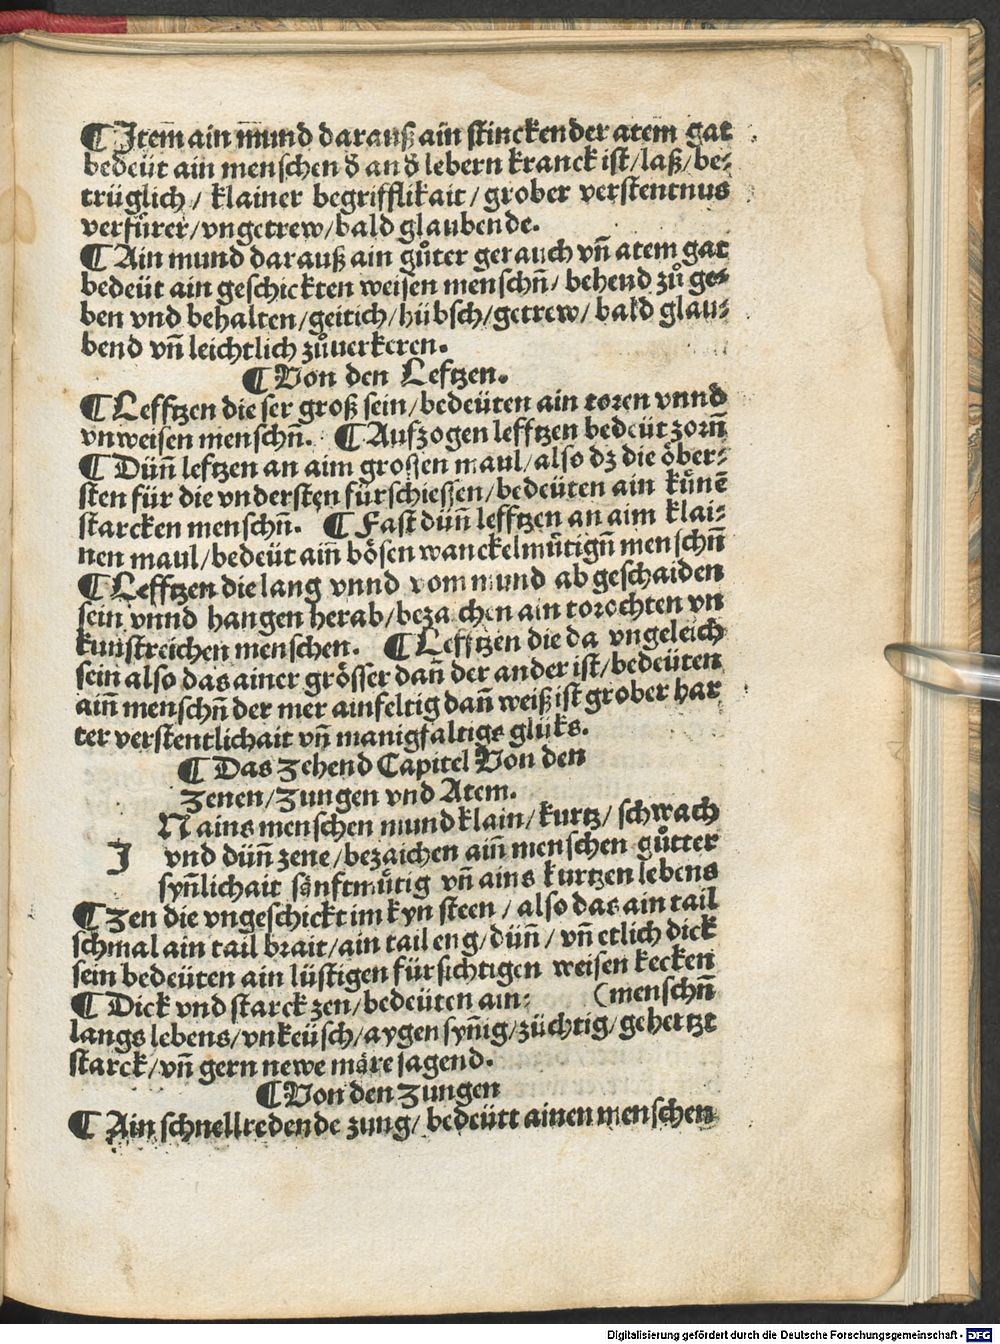 ¶ Item̄ ain mund darauß ain stinckender atem gat
bedeüt ain menschen d̕ an d̕ lebern kranck ist/laß/be⸗
trüglich/ klainer begrifflikait/ grober verstentnus
verfürer/vngetrew/bald glaubende.
¶ Ain mund darauß ain gůter gerauch vn̄ atem gat
bedeüt ain geschickten weisen menschn̄/ behend zů ge⸗
ben vnd behalten/geitich/hübsch/getrew/ bald glau⸗
bend vn̄ leichtlich zůuerkeren.
¶ Von den Leftzen.
¶ Lefftzen die ser groß sein/bedeüten ain toren vnnd
vnweisen menschn̄. ¶ Aufzogen lefftzen bedeüt zorn̄
¶ Dün̄ leftzen an aim grossen maul/also dz die öber⸗
sten für die vndersten fürschiessen/bedeüten ain künē
starcken menschn̄. ¶ Fast dün̄ lefftzen an aim klai⸗
nen maul/bedeüt ain̄ bösen wanckelmütign̄ menschn̄
¶ Lefftzen die lang vnnd vom mund abgeschaiden
sein vnnd hangen herab/bezaichen ain torochten vn
kunstreichen menschen. ¶ Lefftzen die da vngeleich
sein also das ainer grösser dan̄ der ander ist/bedeüten
ain̄ menschn̄ der mer ainfeltig dan̄ weiß ist grober har
ter verstentlichait vn̄ manigfaltigs glüks.
¶ Das zehend Capitel Von den
zenen/zungen vnd Atem.
N ains menschen mund klain/kurtz/schwach
J vnd dün̄ zene/bezaichen ain̄ menschen gůtter
syn̄lichait sänftmütig vn̄ ains kurtzen lebens
¶ zen die vngeschickt im kyn steen/also das ain tail
schmal ain tail brait/ain tail eng/dün̄/vn̄ etlich dick
sein bedeüten ain lüstigen fürsichtigen weisen kecken
¶ Dick vnd starck zen/bedeüten ain⸗ (menschn̄
langs lebens/vnkeüsch/aygensyn̄ig/züchtig/gehertzt
starck/vn̄ gern newe märe sagend.
¶ Von den zungen
¶ Ain schnellredende zung/bedeütt ainen menschen
Digitalisierung gefördert durch die Deutsche Forschungsgemeinschaft - DFG